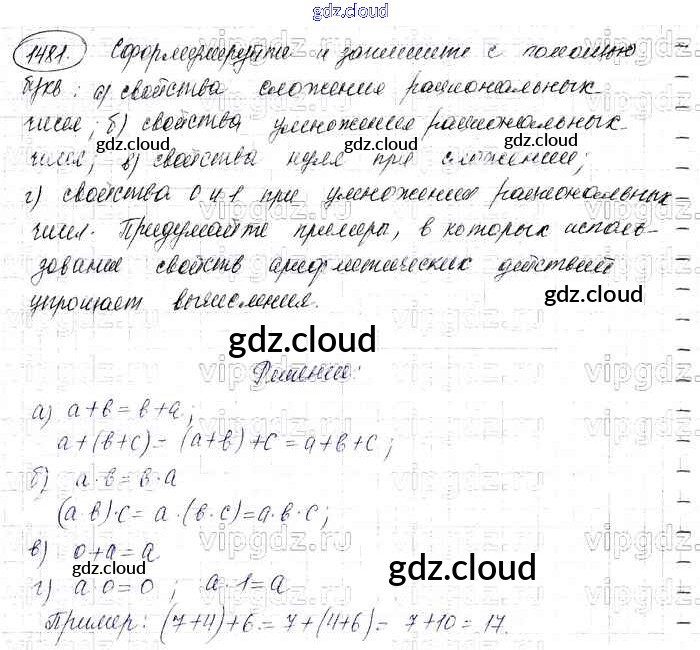 gdz.cloud
1481. Сформулируйте и запишите с помощью
букв: а) свойства сложения рациональных
чисел; б) свойства умножения рациональных
gdz.cloud
чисел; в) свойства нуля при сложении;
г) свойства 0 и 1 при умножении рациональных
чисел. Придумайте примеры, в которых исполь-
зование свойств арифметических действий
gdz.cloud
упрощает вычисления.
gdz.cloud
Решение:
а) а+в=в+а;
а+(в+с)=(а+в)+с=а+в+с;
б) а·в=в·а
(а·в)·с=а·(в·с)=а·в·с;
gdz.cloud
в) 0+а=а
gdz.cloud
г) а·0=0; а·1=а
Пример: (7+4)+6=7+(4+6)=7+10=17.